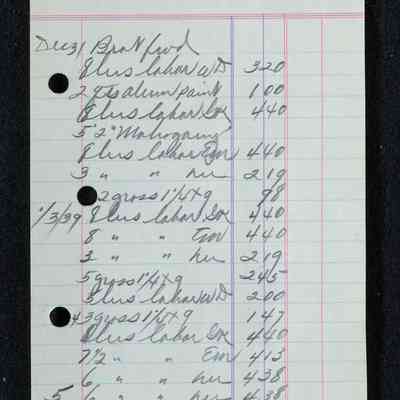 Dec 31 Bradford
8 hrs labor WD 320
2 qts alum paint 1 00
8 hrs labor Geo 440
5' 2" Mahogany
8 hrs labor Em 440
3 " " her 219
2 gross 1¼ x 9 98
1/3/39 8 hrs labor Geo 440
8 " " Em 440
3 " " her 219
5 gross 1¼ x 9 245
5 hrs labor WD 200
3 gross 1½ x 9 147
8 hrs labor Geo 440
7½ " " Em 413
6 " " her 438
5 6 " " her 438